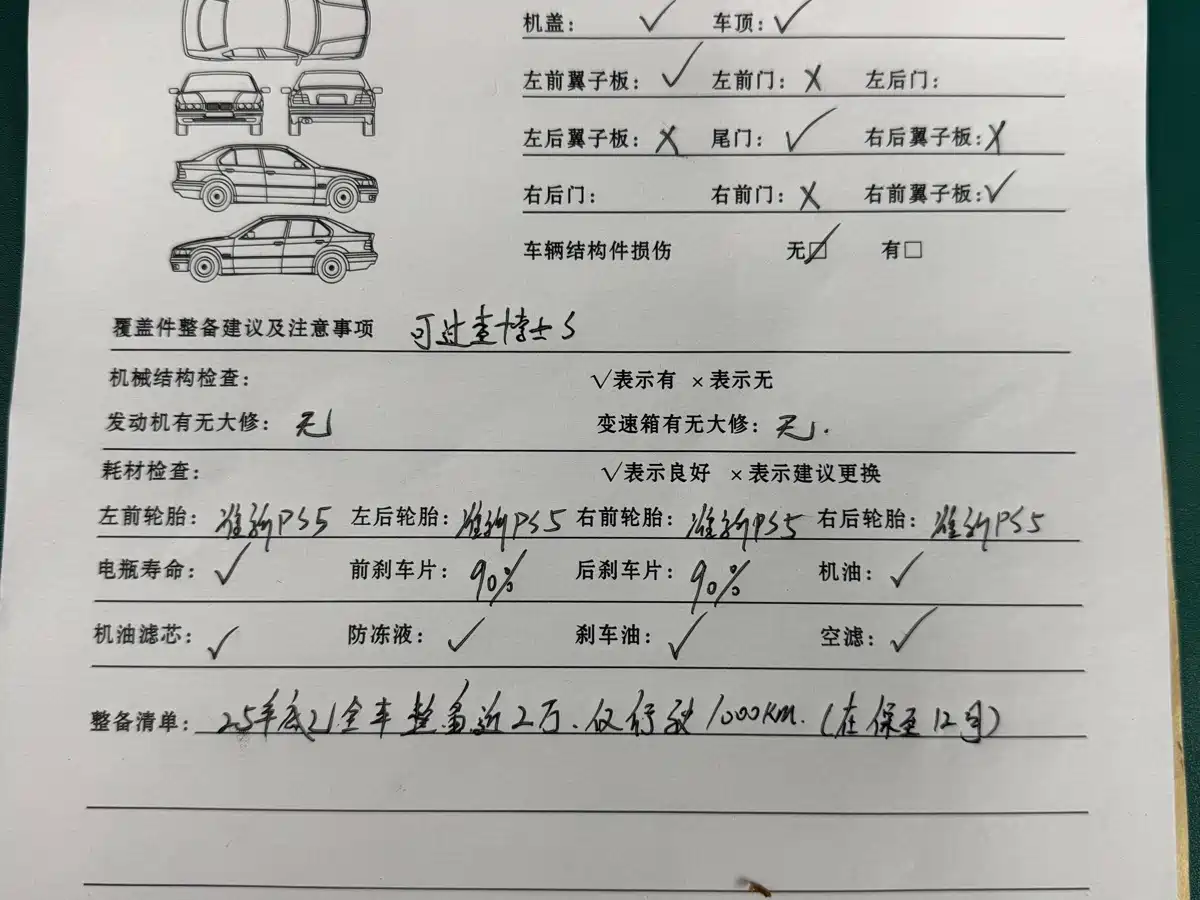 机盖: ✓ 车顶: ✓
左前翼子板: ✓ 左前门: × 左后门:
左后翼子板: × 尾门: ✓ 右后翼子板: ×
右后门: 右前门: × 右前翼子板: ✓
车辆结构件损伤 无☑ 有□
覆盖件整备建议及注意事项 可过查博士S
机械结构检查: √表示有 ×表示无
发动机有无大修: 无 变速箱有无大修: 无.
耗材检查: √表示良好 ×表示建议更换
左前轮胎: 准新PS5 左后轮胎: 准新PS5 右前轮胎: 准新PS5 右后轮胎: 准新PS5
电瓶寿命: ✓ 前刹车片: 90% 后刹车片: 90% 机油: ✓
机油滤芯: ✓ 防冻液: ✓ 刹车油: ✓ 空滤: ✓
整备清单: 25年底 全车整备近2万.仅行驶1000KM.(在保至12月)